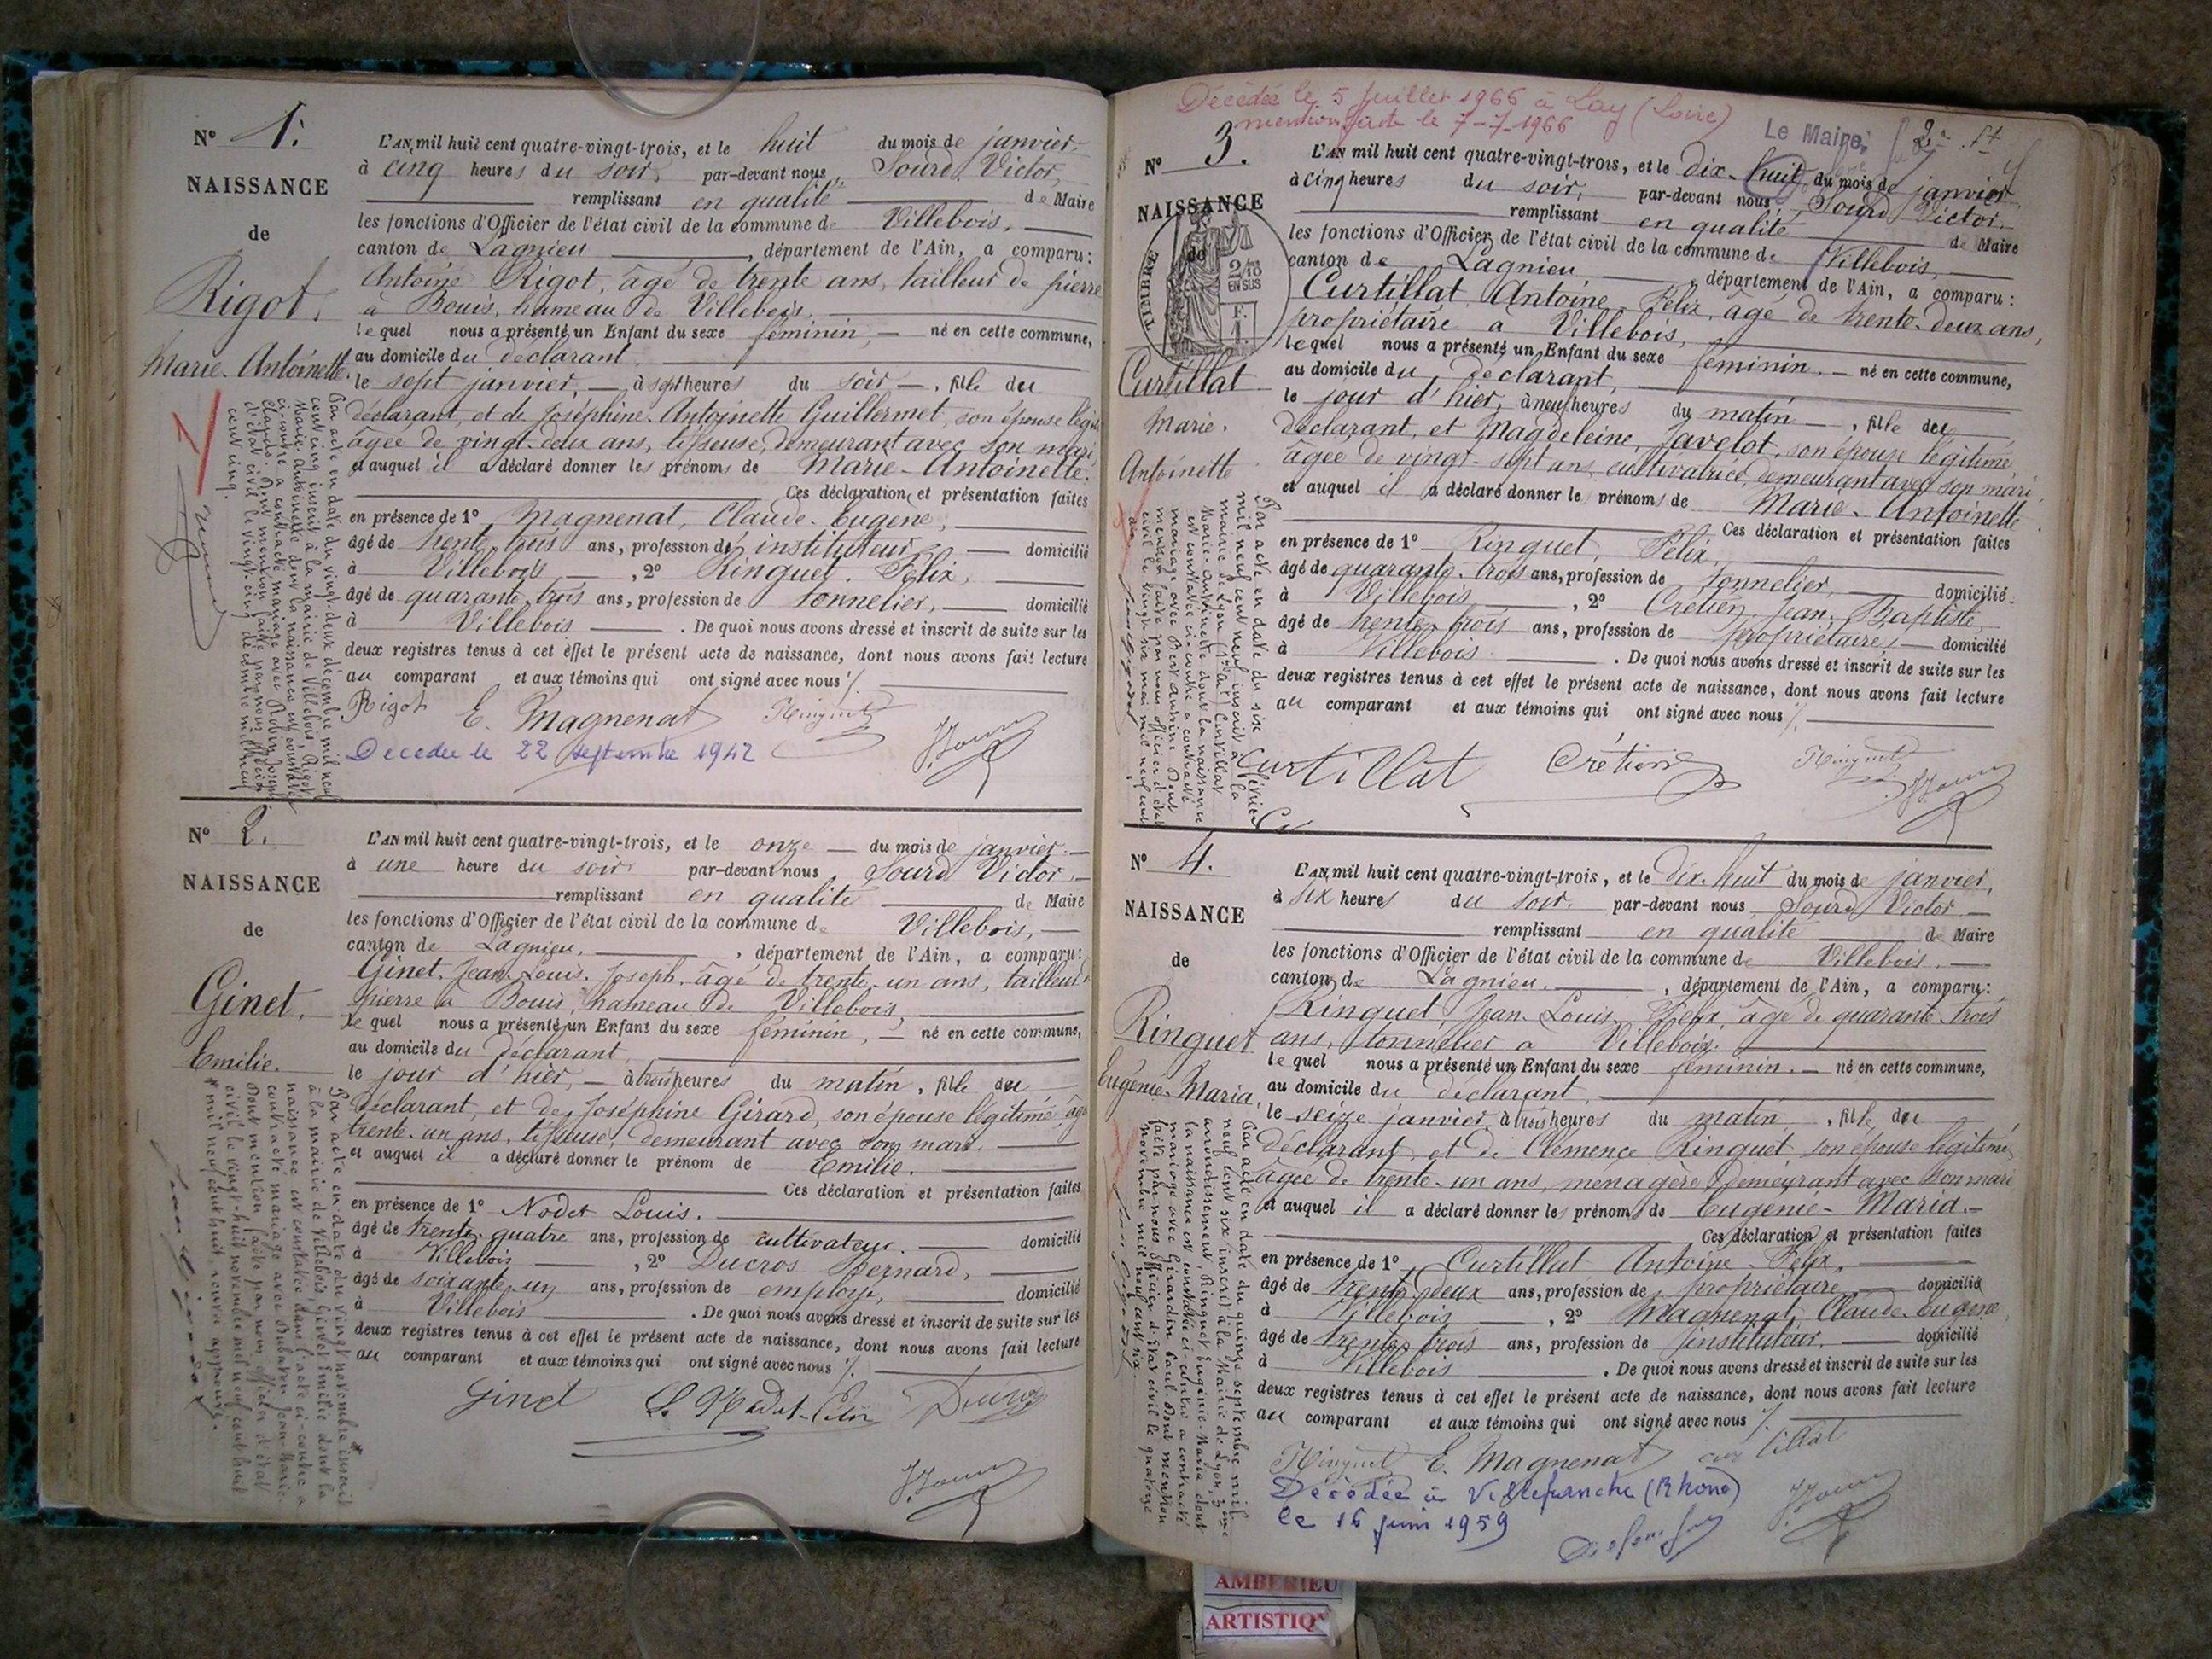 N° 1.
NAISSANCE
de
Rigot,
Marie-Antoinette.
L'AN mil huit cent quatre-vingt-trois, et le huit du mois de janvier,
à cinq heures du soir, par-devant nous, Sourd Victor,
remplissant en qualité de Maire
les fonctions d'Officier de l'état civil de la commune de Villebois,
canton de Lagnieu, département de l'Ain, a comparu:
Antoine Rigot, âgé de trente ans, tailleur de pierre
à Bouis, hameau de Villebois,
lequel nous a présenté un Enfant du sexe féminin, né en cette commune,
au domicile du déclarant,
le sept janvier, à sept heures du soir, fille du
déclarant, et de Joséphine-Antoinette Guillermet, son épouse légit.
âgée de vingt-deux ans, tisseuse, demeurant avec son mari,
et auquel il a déclaré donner les prénoms de Marie-Antoinette.
Ces déclaration et présentation faites
en présence de 1° Magnenat, Claude-Eugène,
âgé de trente-trois ans, profession d'instituteur, domicilié
à Villebois, 2° Ringuet, Félix,
âgé de quarante-trois ans, profession de tonnelier, domicilié
à Villebois. De quoi nous avons dressé et inscrit de suite sur les
deux registres tenus à cet effet le présent acte de naissance, dont nous avons fait lecture
au comparant et aux témoins qui ont signé avec nous
Rigot E. Magnenat Ringuet
Décédée le 22 septembre 1942
Par acte en date du vingt-deux décembre mil neuf
cent cinq inscrit à la mairie de Villebois, Rigot
Marie-Antoinette dont la naissance est constatée
ci-contre a contracté mariage avec Robin
Claudius. Dont mention faite par nous officier
d'état civil le vingt-cinq décembre mil neuf
cent cinq.
N° 2.
NAISSANCE
de
Ginet,
Emilie.
L'AN mil huit cent quatre-vingt-trois, et le onze du mois de janvier
à une heure du soir par-devant nous Sourd Victor,
remplissant en qualité de Maire
les fonctions d'Officier de l'état civil de la commune de Villebois,
canton de Lagnieu, département de l'Ain, a comparu:
Ginet, Jean-Louis-Joseph, âgé de trente-un ans, tailleur d
pierre à Bouis, hameau de Villebois,
lequel nous a présenté un Enfant du sexe féminin, né en cette commune,
au domicile du déclarant,
le jour d'hier, à trois heures du matin, fille du
déclarant, et de Joséphine Girard, son épouse légitime, âgé
trente-un ans, tisseuse, demeurant avec son mari
et auquel il a déclaré donner le prénom de Emilie.
Ces déclaration et présentation faites
en présence de 1° Nodet Louis.
âgé de trente-quatre ans, profession de cultivateur. domicilié
à Villebois, 2° Ducros Bernard,
âgé de soixante-un ans, profession de employé, domicilié
à Villebois. De quoi nous avons dressé et inscrit de suite sur les
deux registres tenus à cet effet le présent acte de naissance, dont nous avons fait lecture
au comparant et aux témoins qui ont signé avec nous
Ginet
Par acte en date du vingt novembre * inscrit
à la mairie de Villebois, Ginet Emilie dont la
naissance est constatée dans l'acte ci-contre a
contracté mariage avec Jean-Marie.
Dont mention faite par nous officier d'état
civil le vingt-huit novembre mil neuf cent huit
* mil neuf cent huit, renvoi approuvé.
Décédée le 5 Juillet 1966 à Lay (Loire)
mention faite le 7-7-1966
Le Maire,
N° 3.
NAISSANCE
de
TIMBRE
2/10 EN SUS
Curtillat
Marie-
Antoinette
L'AN mil huit cent quatre-vingt-trois, et le dix-huit du mois de janvier
à cinq heures du soir, par-devant nous, Sourd Victor,
remplissant en qualité de Maire
les fonctions d'Officier de l'état civil de la commune de Villebois,
canton de Lagnieu, département de l'Ain, a comparu:
Curtillat, Antoine-Félix, âgé de trente-deux ans,
propriétaire à Villebois,
lequel nous a présenté un Enfant du sexe féminin, né en cette commune,
au domicile du déclarant,
le jour d'hier, à neuf heures du matin, fille du
déclarant, et Magdeleine Javelot, son épouse légitime,
âgée de vingt-sept ans, cultivatrice, demeurant avec son mari,
et auquel il a déclaré donner les prénoms de Marie-Antoinette
Ces déclaration et présentation faites
en présence de 1° Ringuet, Félix,
âgé de quarante-trois ans, profession de tonnelier, domicilié
à Villebois, 2° Crétien, Jean-Baptiste,
âgé de trente-trois ans, profession de propriétaire, domicilié
à Villebois. De quoi nous avons dressé et inscrit de suite sur les
deux registres tenus à cet effet le présent acte de naissance, dont nous avons fait lecture
au comparant et aux témoins qui ont signé avec nous
Curtillat Crétien Ringuet
Par acte en date du seize février
mil neuf cent neuf, inscrit à la
mairie de Lyon Curtillat
Marie-Antoinette dont la naissance
est constatée ci-contre a contracté
mariage avec Dont
mention faite par nous officier d'état
civil le vingt-six mai mil neuf cent
N° 4.
NAISSANCE
de
Ringuet
Eugénie-Maria,
L'AN mil huit cent quatre-vingt-trois, et le dix-huit du mois de janvier,
à six heures du soir, par-devant nous Sourd Victor,
remplissant en qualité de Maire
les fonctions d'Officier de l'état civil de la commune de Villebois,
canton de Lagnieu, département de l'Ain, a comparu:
Ringuet, Jean-Louis-Félix, âgé de quarante-trois
ans, tonnelier à Villebois.
lequel nous a présenté un Enfant du sexe féminin, né en cette commune,
au domicile du déclarant,
le seize janvier, à trois heures du matin, fille du
déclarant, et de Clémence Ringuet, son épouse légitime,
âgée de trente-un ans, ménagère, demeurant avec son mari
et auquel il a déclaré donner les prénoms de Eugénie-Maria.
Ces déclaration et présentation faites
en présence de 1° Curtillat Antoine-Félix,
âgé de trente-deux ans, profession de propriétaire, domicilié
à Villebois, 2° Magnenat, Claude-Eugène,
âgé de trente-trois ans, profession d'instituteur, domicilié
à Villebois. De quoi nous avons dressé et inscrit de suite sur les
deux registres tenus à cet effet le présent acte de naissance, dont nous avons fait lecture
au comparant et aux témoins qui ont signé avec nous
Ringuet E. Magnenat Curtillat
Décédée à Villefranche (Rhône)
le 16 juin 1959
Par acte en date du quinze septembre mil
neuf cent six inscrit à la Mairie de Lyon, 3ème
arrondissement, Ringuet Eugénie-Maria dont
la naissance est constatée ci-contre a contracté
mariage avec Girardin Paul. Dont mention
faite par nous Officier d'Etat civil le quatorze
novembre mil neuf cent six.
AMBERIEU
ARTISTIQ